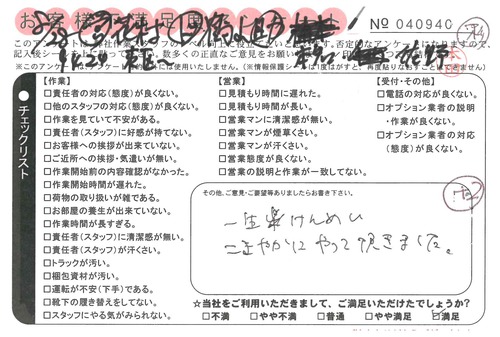 № 040940
このアンケートは
記入後シールを
チェックリスト
【作業】
□責任者の対応(態度)が良くない。
□他のスタッフの対応(態度)が良くない。
□作業を見ていて不安がある。
□責任者(スタッフ)に好感が持てない。
□お客様への挨拶が出来ていない。
□ご近所への挨拶・気遣いが無い。
□作業開始前の内容確認がなかった。
□作業開始時間が遅れた。
□荷物の取り扱いが雑である。
□お部屋の養生が出来ていない。
□作業時間が長すぎる。
□責任者(スタッフ)に清潔感が無い。
□責任者(スタッフ)が汗くさい。
□トラックが汚い。
□梱包資材が汚い。
□運転が不安(下手)である。
□靴下の履き替えをしてない。
□スタッフにやる気がみられない。
【営業】
□見積もり時間に遅れた。
□見積もり時間が長い。
□営業マンに清潔感が無い。
□営業マンが煙草くさい。
□営業マンが汗くさい。
□営業態度が良くない。
□営業の説明と作業が一致してない。
【受付・その他】
□電話の対応が良くない。
□オプション業者の説明
・作業が良くない。
□オプション業者の対応
(態度)が良くない。
その他、ご意見・ご要望等ありましたらお書き下さい。
一生懸けんめい
こまやかにやって頂きました。
☆当社をご利用いただきまして、ご満足いただけたでしょうか?
□不満 □やや不満 □普通 □やや満足 ☑満足